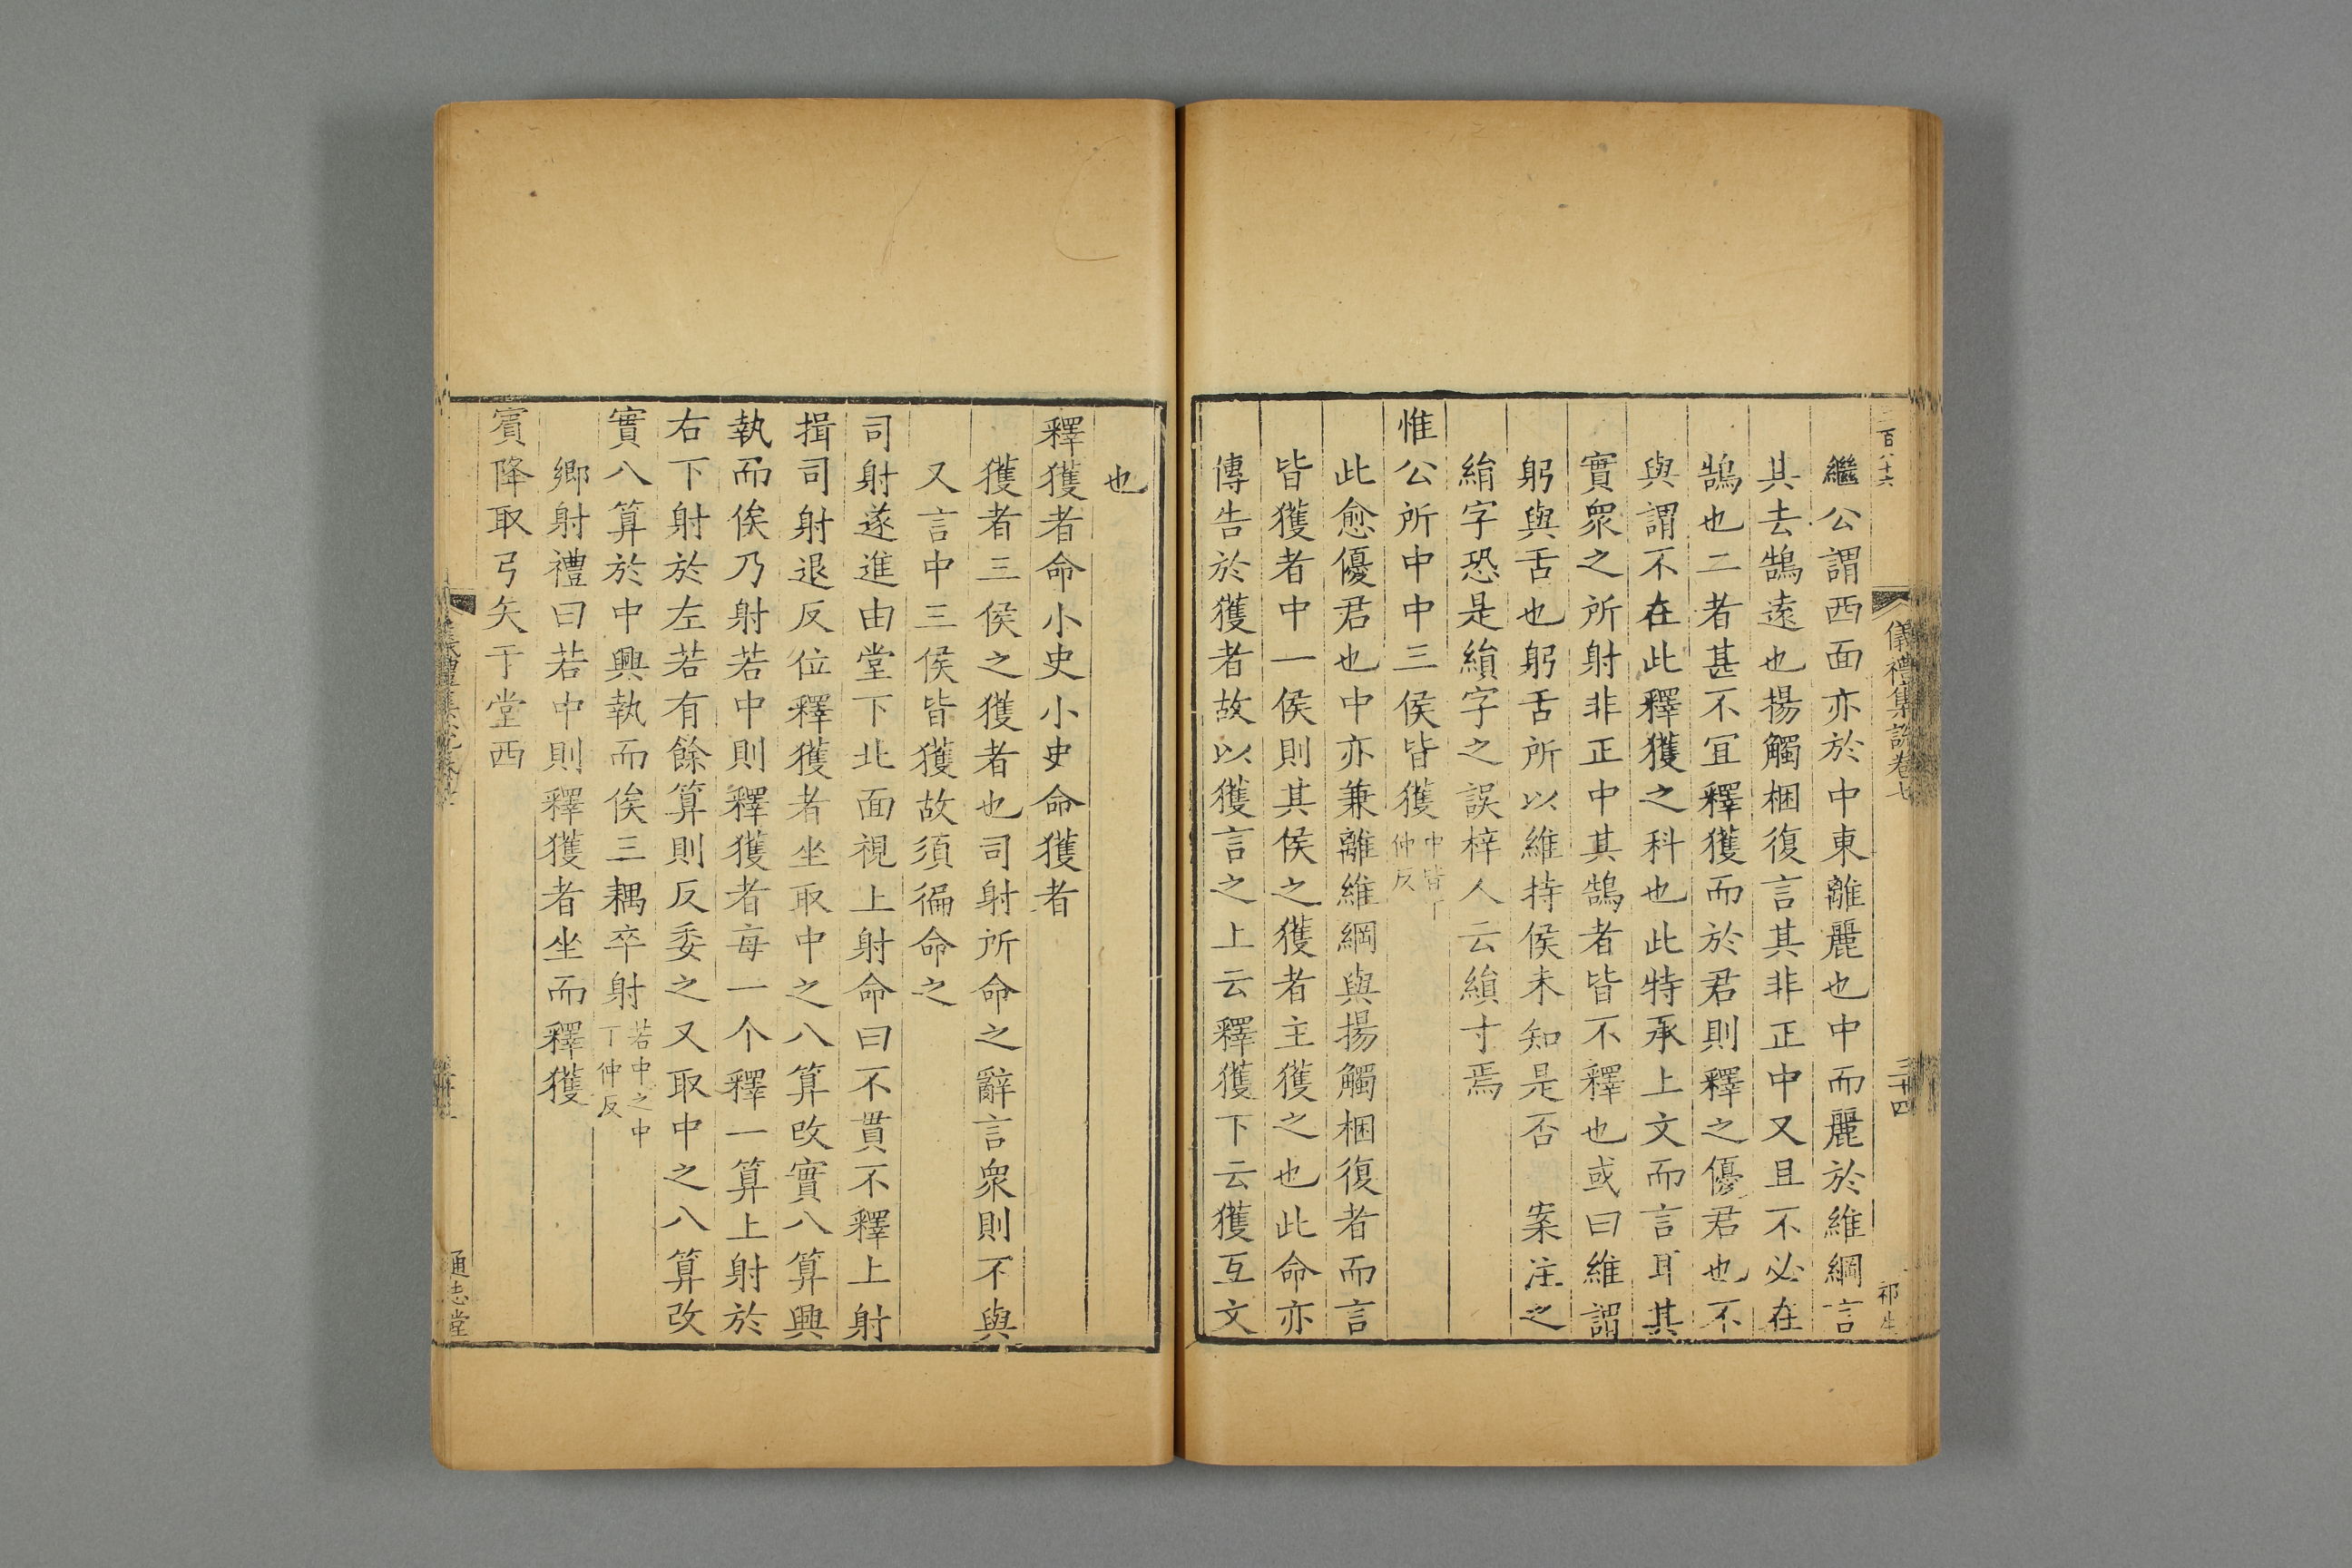 百八十六
儀禮集說卷七
三十四
祁生
繼公謂西面亦於中東離麗也中而麗於維綱言
其去鵠遠也揚觸梱復言其非正中又且不必在
鵠也二者甚不宜釋獲而於君則釋之優君也不
與謂不在此釋獲之科也此特承上文而言耳其
實衆之所射非正中其鵠者皆不釋也或曰維謂
躬與舌也躬舌所以維持侯未知是否 案注之
絹字恐是縜字之誤梓人云縜寸焉
惟公所中中三侯皆獲中皆丁仲反
此愈優君也中亦兼離維綱與揚觸梱復者而言
皆獲者中一侯則其侯之獲者主獲之也此命亦
傳告於獲者故以獲言之上云釋獲下云獲互文
也
釋獲者命小史小史命獲者
獲者三侯之獲者也司射所命之辭言衆則不與
又言中三侯皆獲故須徧命之
司射遂進由堂下北面視上射命曰不貫不釋上射
揖司射退反位釋獲者坐取中之八算改實八算興
執而俟乃射若中則釋獲者每一个釋一算上射於
右下射於左若有餘算則反委之又取中之八算改
實八算於中興執而俟三耦卒射若中之中丁仲反
鄉射禮曰若中則釋獲者坐而釋獲
賓降取弓矢于堂西
通志堂